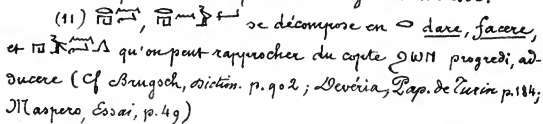 (11) , se décompose en dare, facere,
et qu'on peut rapprocher du copte ϩⲱⲛ progredi, ad-
ducere (Cf Brugsch, Diction. p. 902 ; Devéria, Pap. de Turin p. 184;
Maspero, Essai, p. 49)